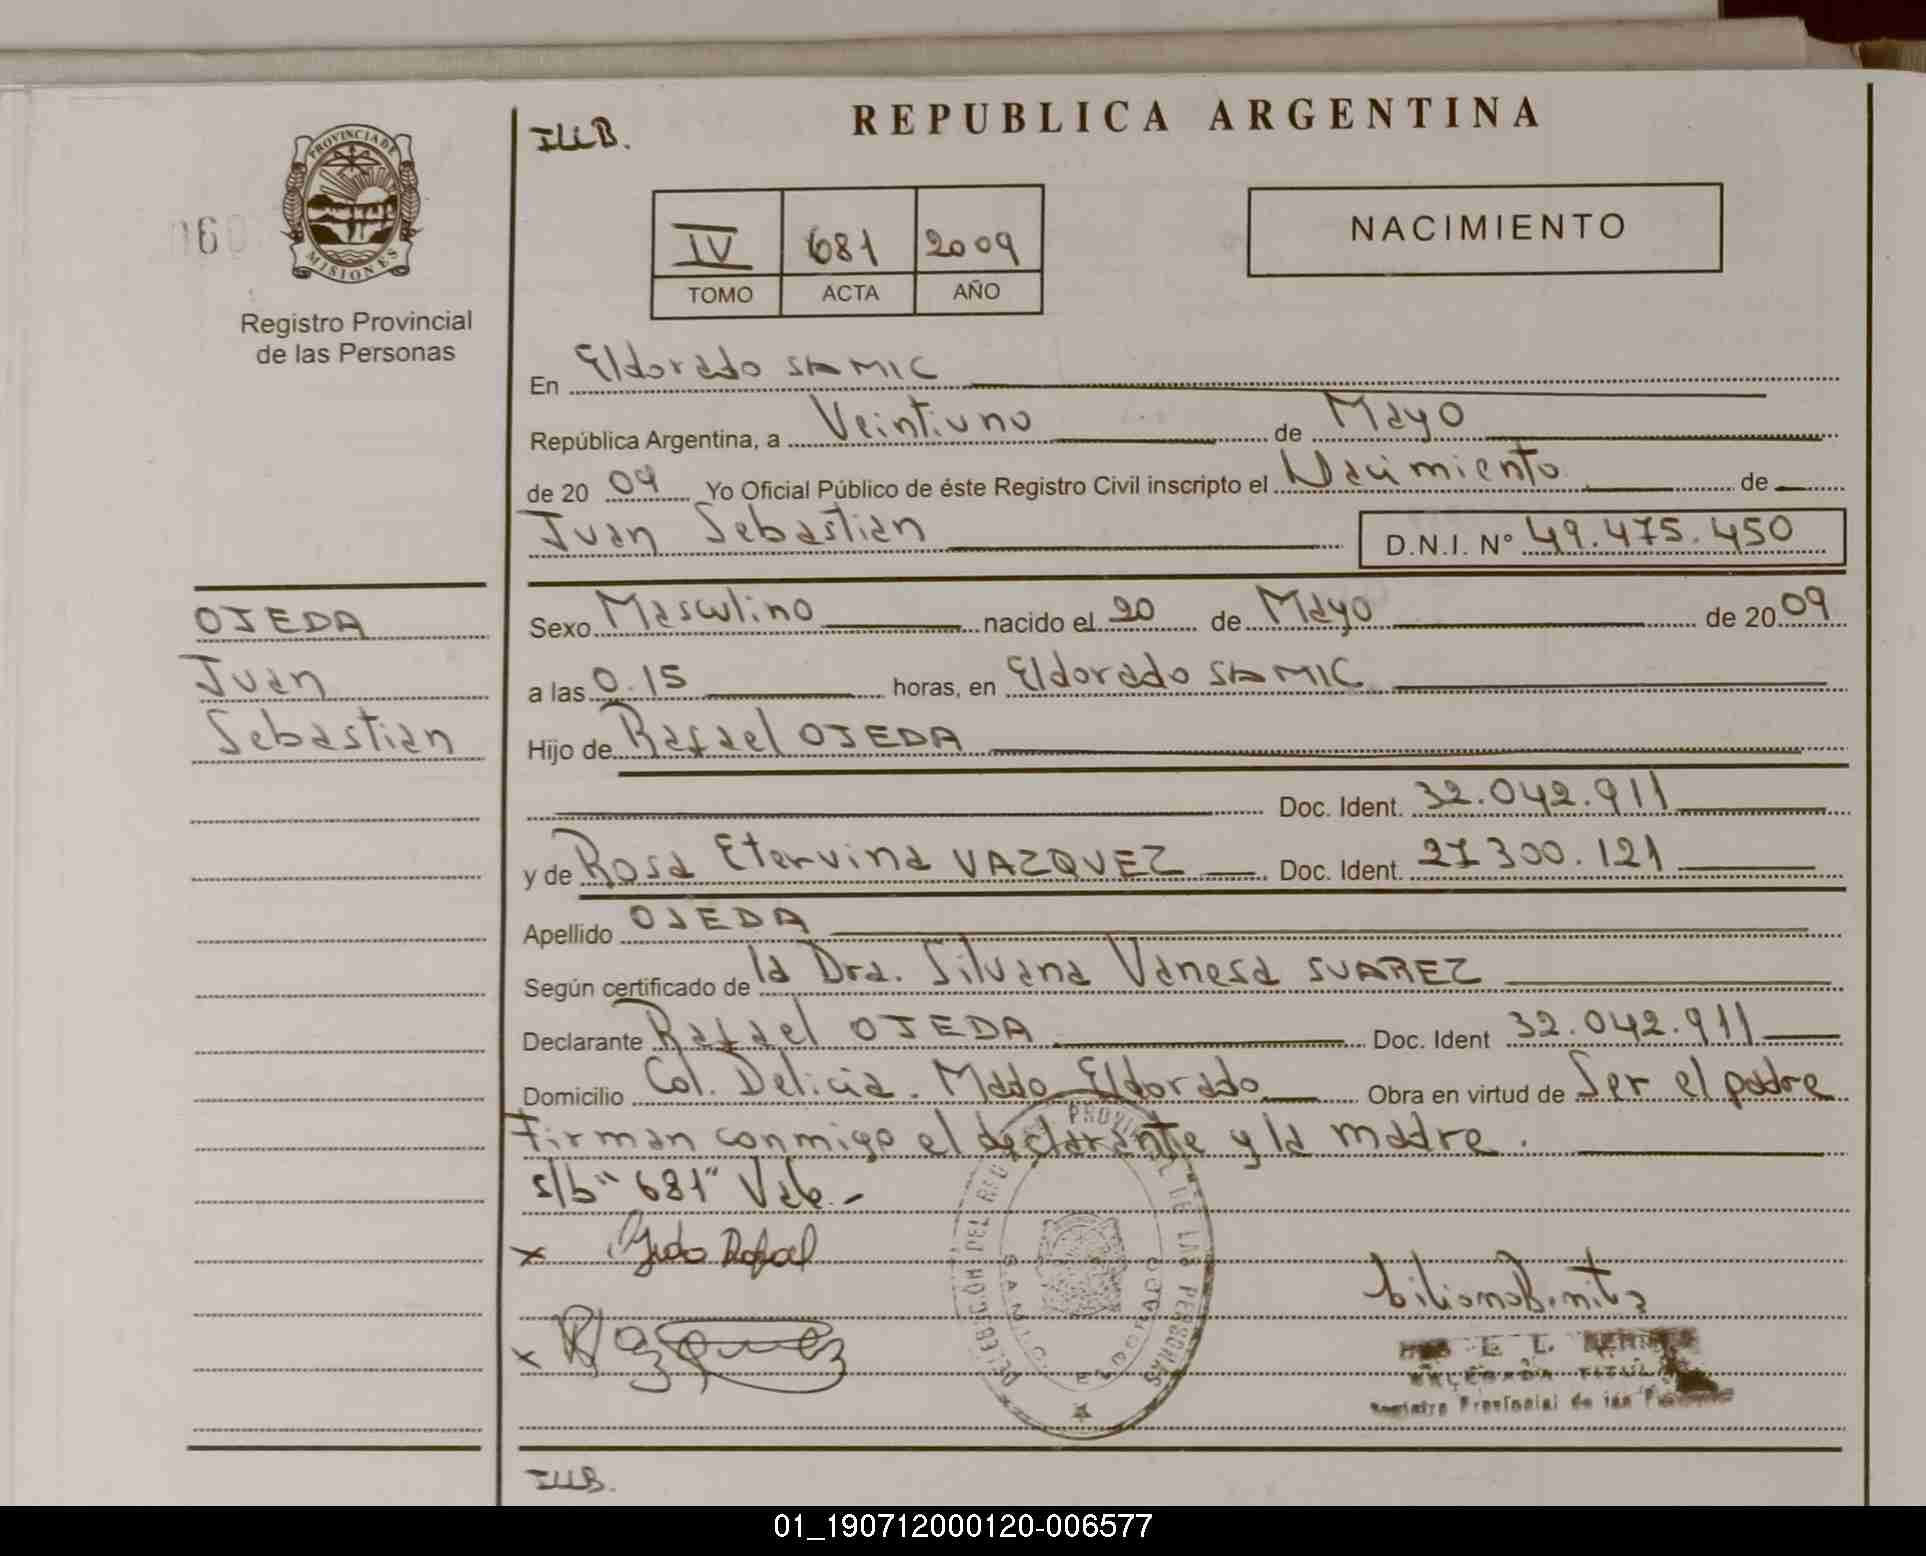 REPUBLICA ARGENTINA
ILLB.
PROVINCIA DE MISIONES
160
Registro Provincial
de las Personas
IV 681 2009
TOMO ACTA AÑO
NACIMIENTO
En Eldorado SAMIC
República Argentina, a Veintiuno de Mayo
de 20 09 Yo Oficial Público de éste Registro Civil inscripto el Nacimiento de
Juan Sebastian D.N.I. N° 49.475.450
OJEDA
Juan
Sebastian
Sexo Masculino nacido el 20 de Mayo de 20 09
a las 0.15 horas, en Eldorado SAMIC
Hijo de Rafael OJEDA
Doc. Ident. 32.042.911
y de Rosa Etervina VAZQUEZ Doc. Ident. 27 300.121
Apellido OJEDA
Según certificado de la Dra. Silvana Vanesa SUAREZ
Declarante Rafael OJEDA Doc. Ident 32.042.911
Domicilio Col. Delicia. Mado Eldorado Obra en virtud de Ser el padre
Firman conmigo el declarante y la madre.
s/b "681" Vale.-
x Ojeda Rafael
x
DELEGACIÓN DEL REG. PROVINCIAL DE LAS PERSONAS
S.A.M.I.C. ELDORADO
DELEGADA TITULAR
Registro Provincial de las Personas
ILLB.
01_190712000120-006577